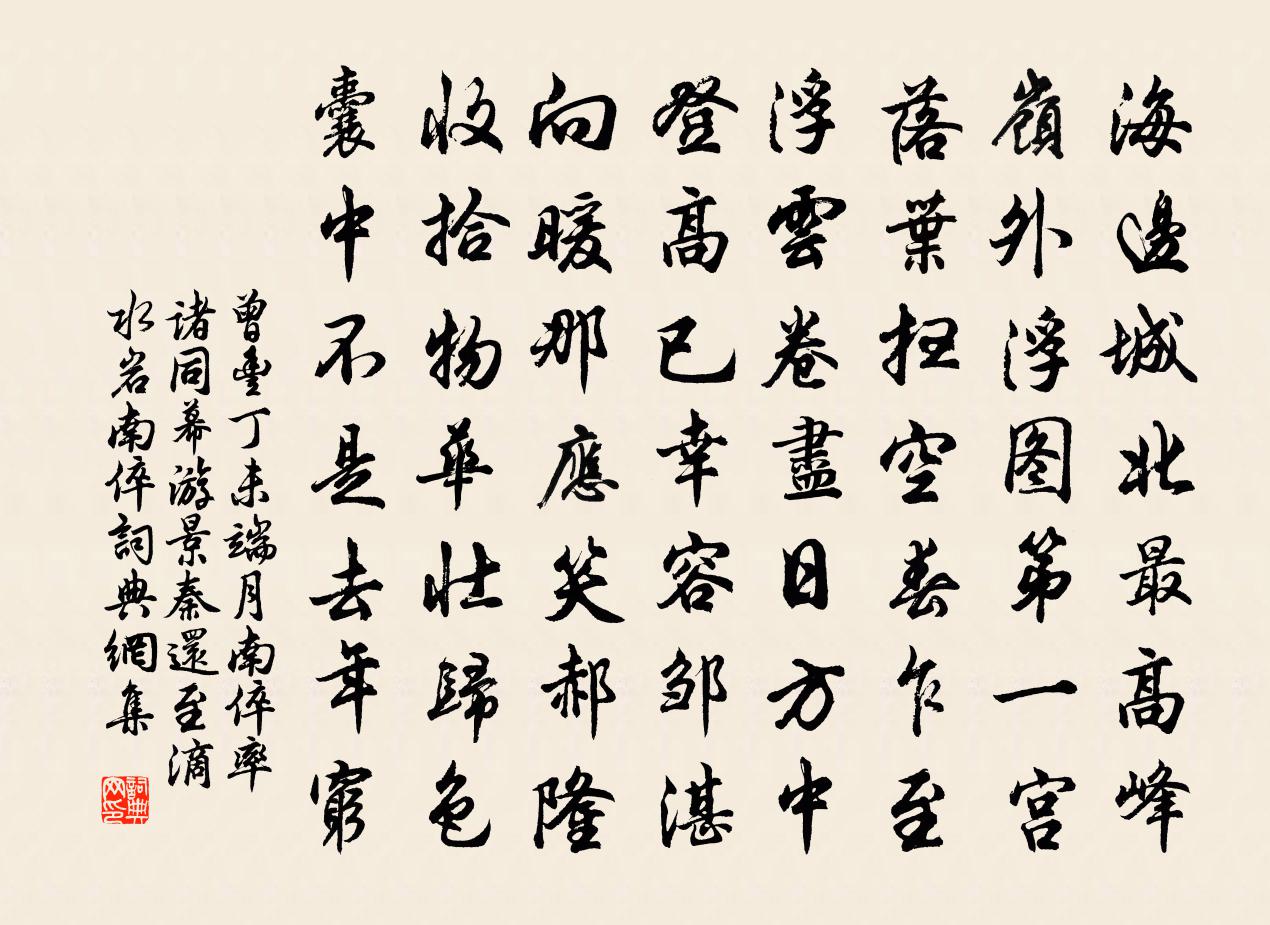 海邊城北最高峰
嶺外浮图第一宫
落葉扫空春乍至
浮雲卷盡日方中
登高已幸容邹湛
向暖那應笑郝隆
收拾物華壮歸色
囊中不是去年窮
曾豐丁未端月南倅率
諸同幕游景泰還至滴
水岩南倅詞典網集
詞典
网印